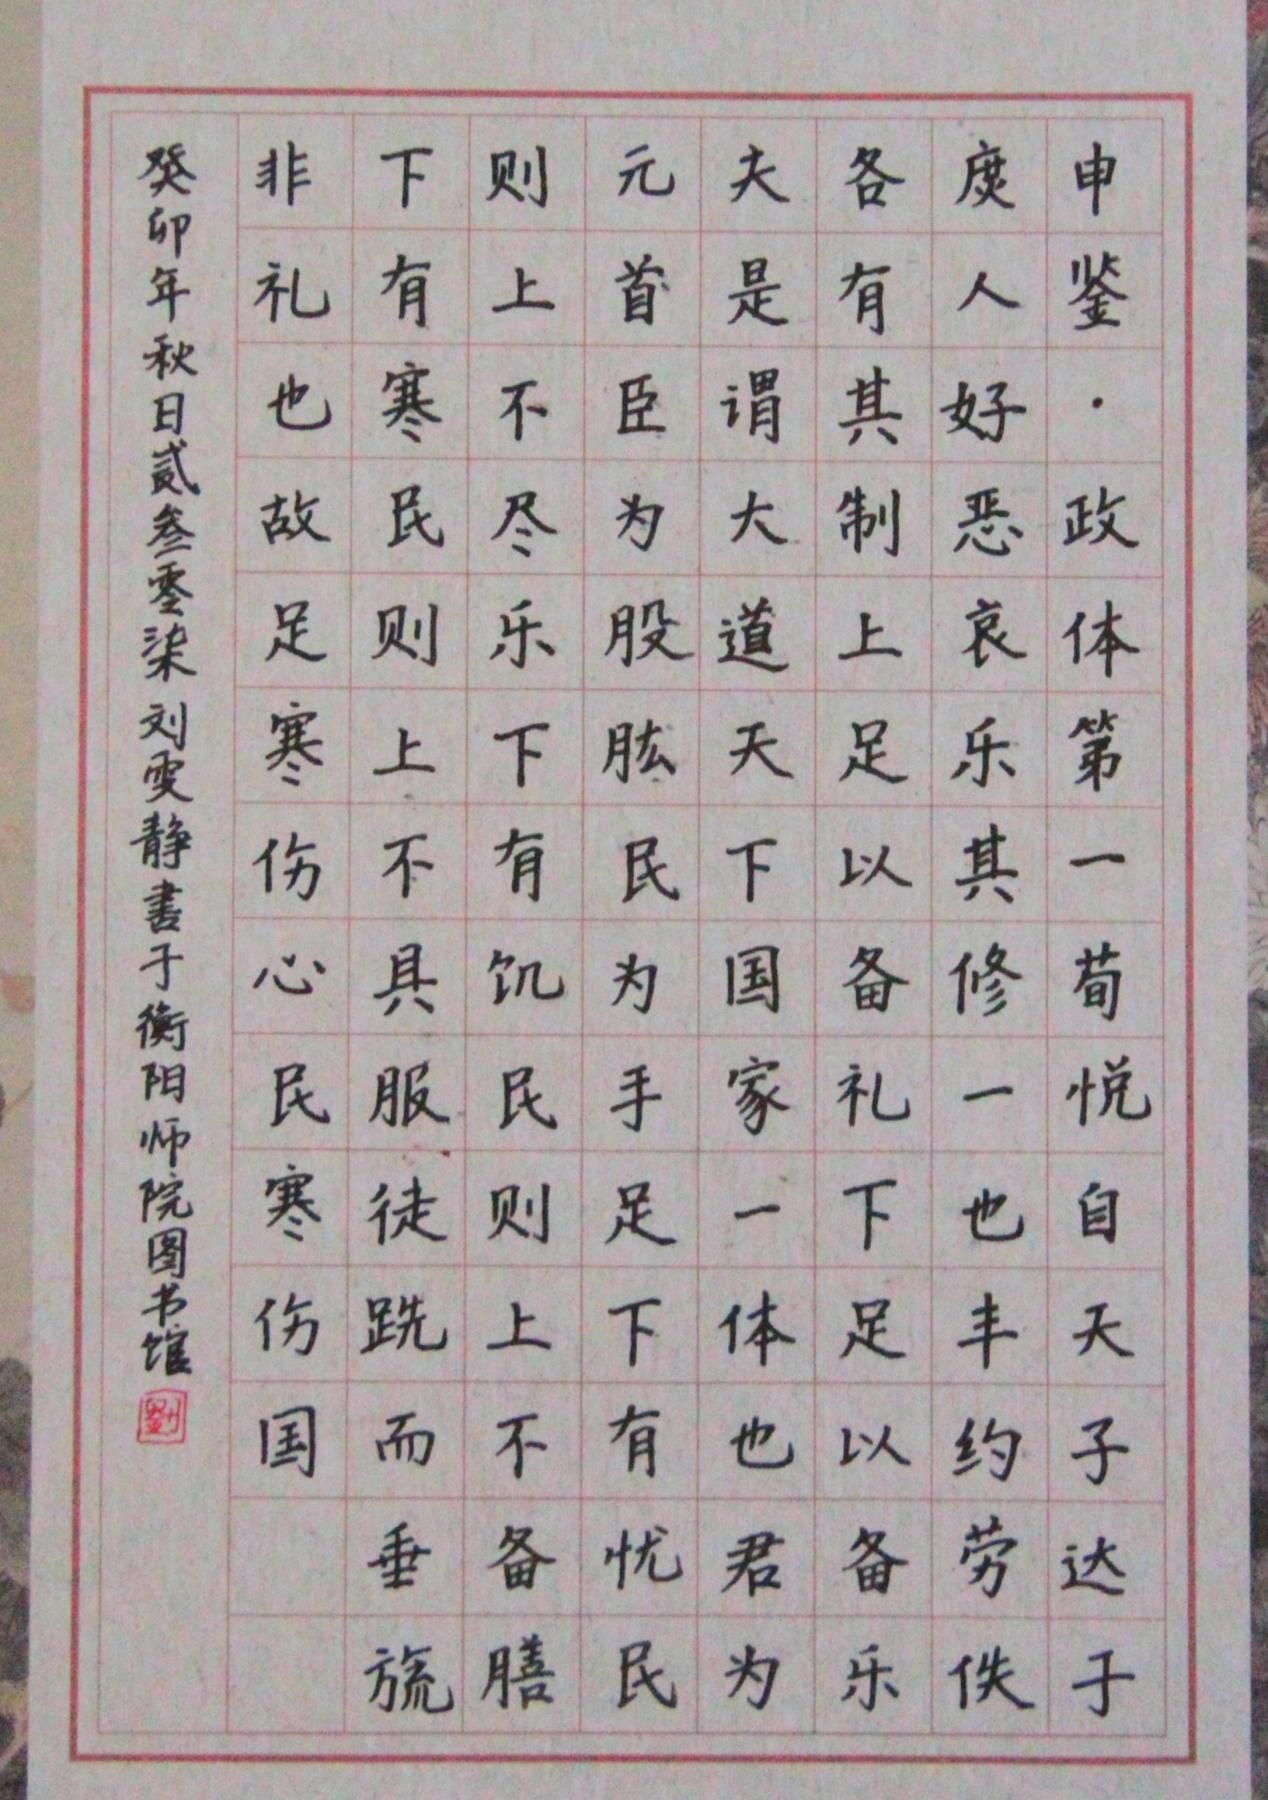 申鉴·政体第一荀悦自天子达于
庶人好恶哀乐其修一也丰约劳佚
各有其制上足以备礼下足以备乐
夫是谓大道天下国家一体也君为
元首臣为股肱民为手足下有忧民
则上不尽乐下有饥民则上不备膳
下有寒民则上不具服徒跣而垂旒
非礼也故足寒伤心民寒伤国
癸卯年秋日贰叁零柒刘雯静書于衡阳师院图书馆
劉